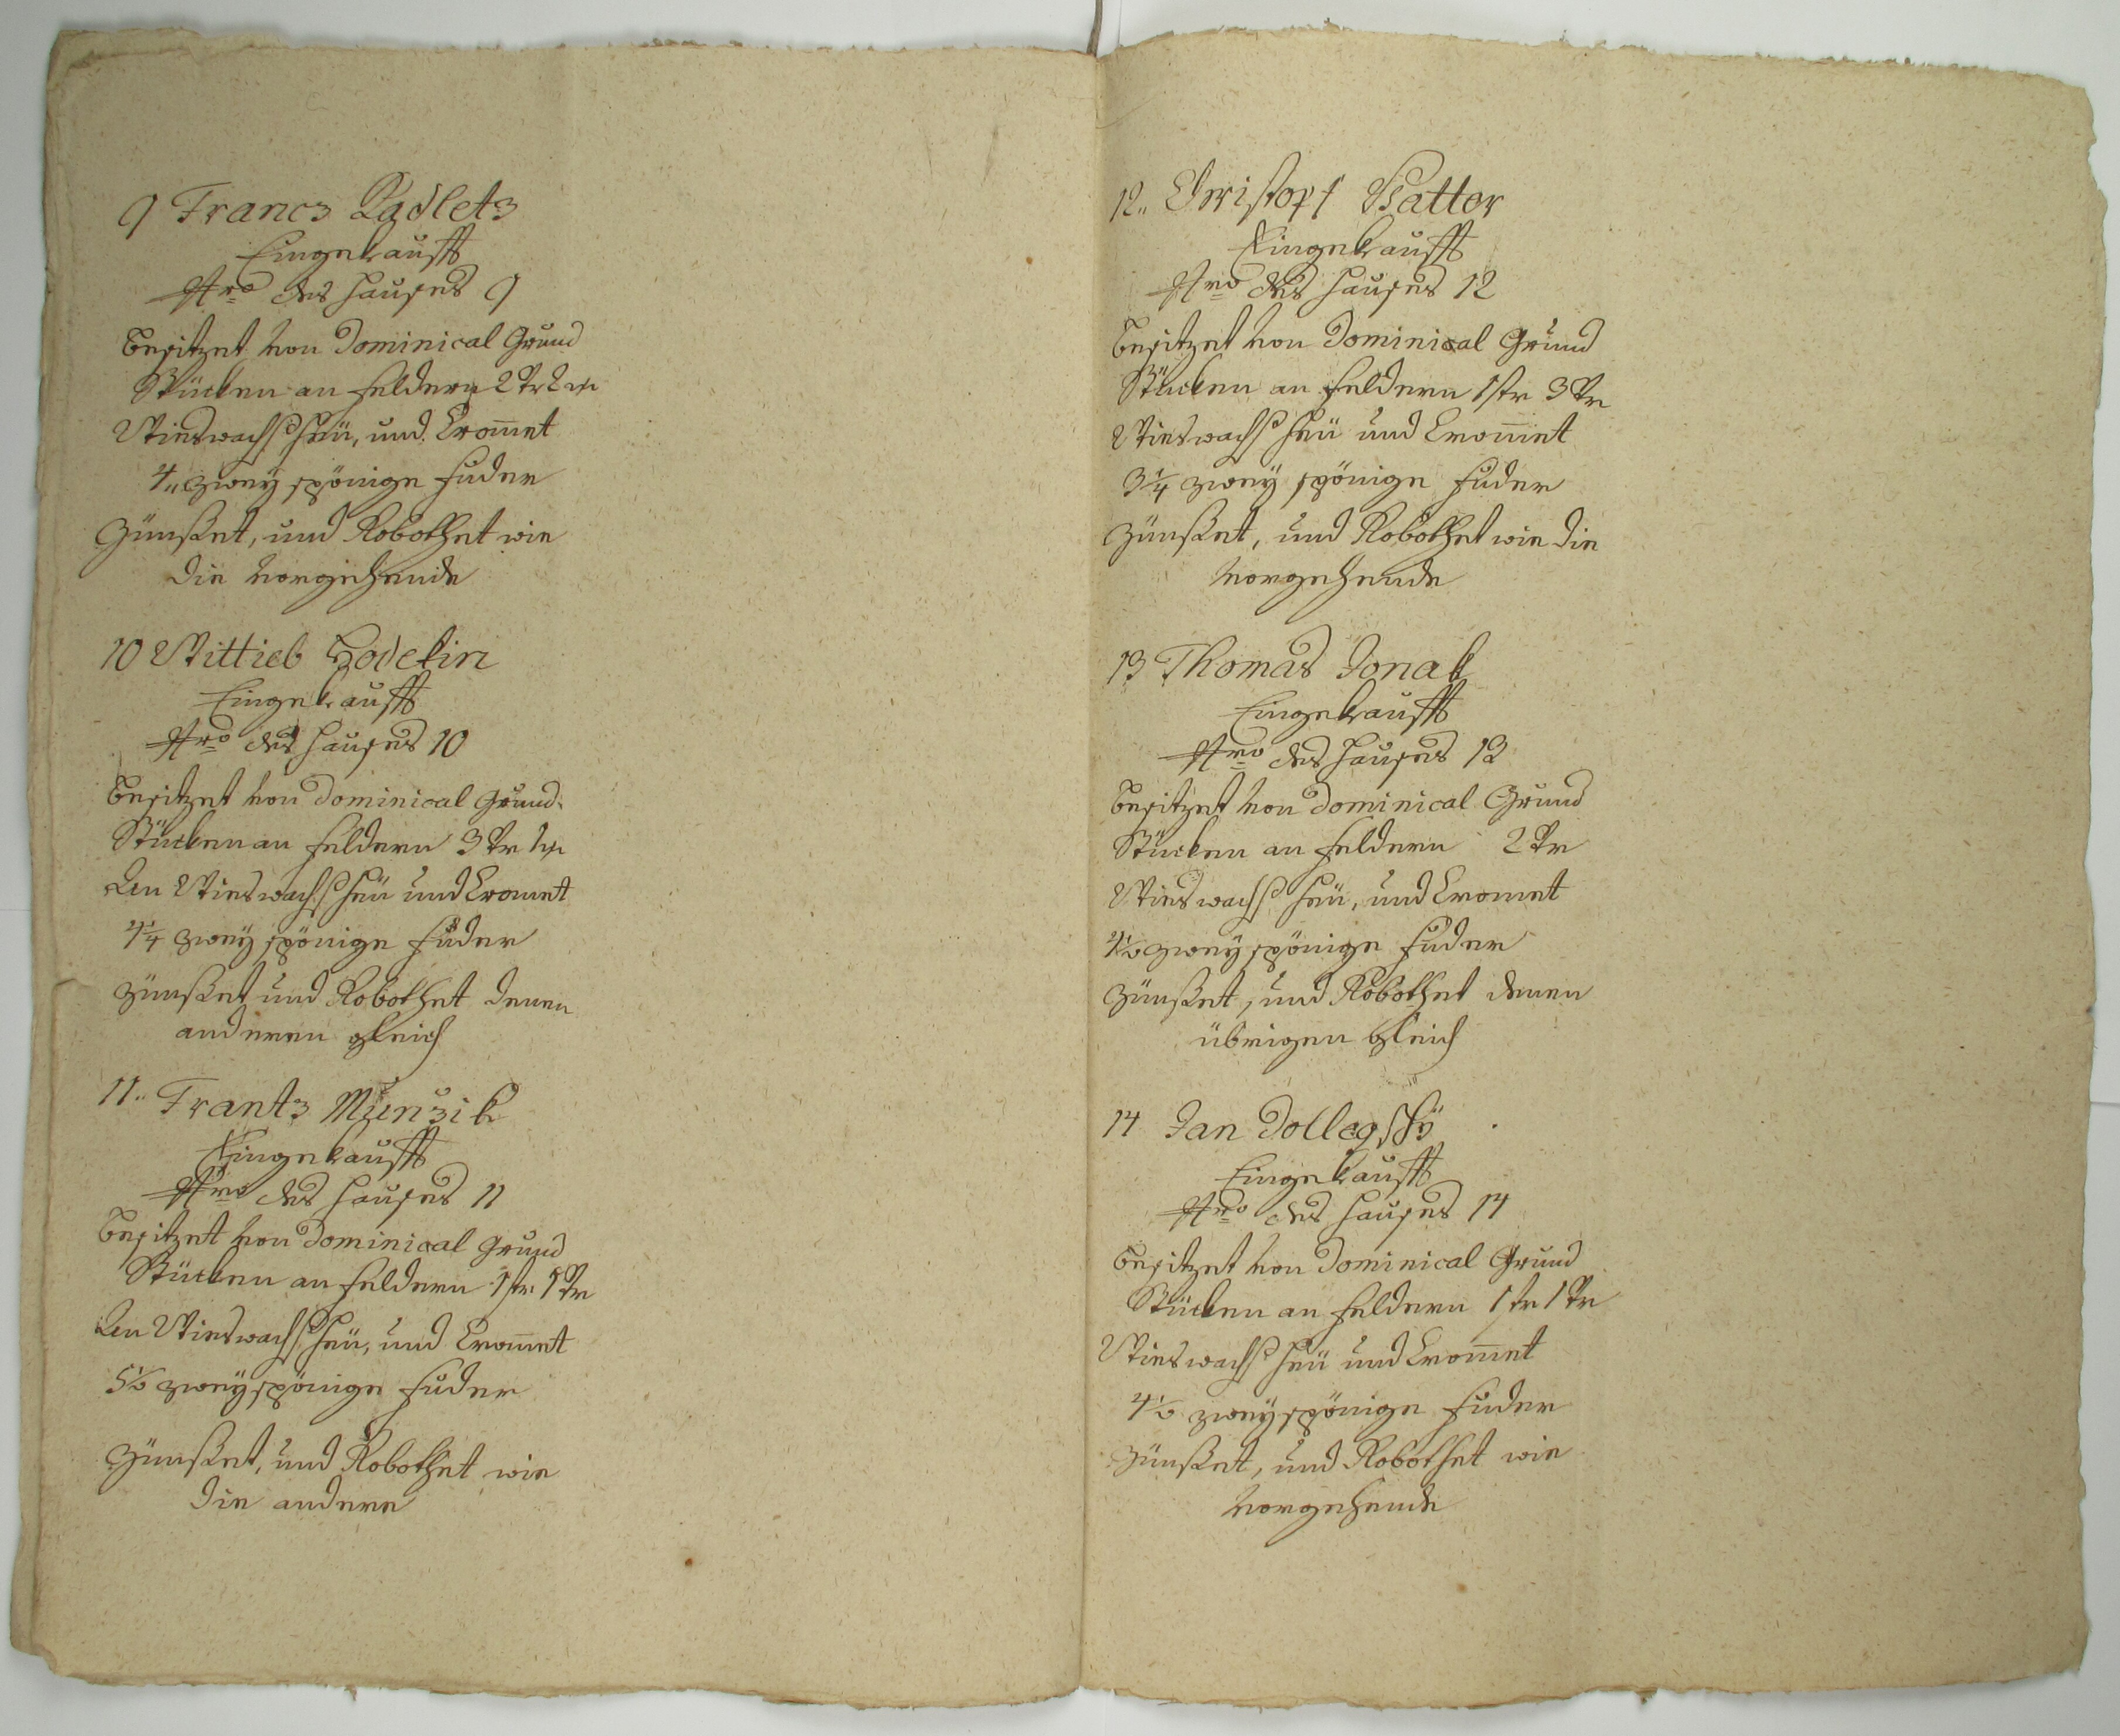 9 Francz Radletz
Eingekaufft
Nro des Hauses 9
besitzet von Dominical Grund
Stücken an Feldern 2 Vr 2
Wieswachs Heü, und Cromet
4 zweyspönige Fuder
Zünßet, und Robothet wie
die vorgehende
10 Wittieb Hodekin
Eingekaufft
Nro des Hauses 10
besitzet von Dominical Grund
Stücken an Feldern 3 Vr
An Wieswachs Heü und Cromet
4 1/4 zweyspönige Fuder
Zünßet und Robothet denen
anderen gleich
11.. Frantz Munzik
Eingekaufft
Nro des Hauses 11
besitzet von Dominical Grund
Stücken an Feldern 1 str 1 Vr
An Wieswachs Heü, und Cromet
5 1/2 zweyspönige Fuder
Zünßet, und Robothet wie
die andere
12.. Christoph Watter
Eingekaufft
Nro des Hauses 12
besitzet von Dominical Grund
Stücken an Feldern 1 str 3 Vr
Wieswachs Heü und Cromet
3 1/4 zweyspönige Fuder
Zünßet, und Robothet wie die
vorgehende
13 Thomas Jonak
Eingekaufft
Nro des Hauses 13
besitzet von Dominical Grund
Stücken an Feldern 2 Vr
Wieswachs Heü, und Cromet
4 1/2 zweyspönige Fuder
Zünßet, und Robothet denen
übrigen gleich
14 Jan Dollegschÿ
Eingekaufft
Nro des Hauses 14
besitzet von Dominical Grund
Stücken an Feldern 1 str 1 Vr
Wieswachs Heü und Cromet
4 1/2 zweyspönige Fuder
Zünßet, und Robothet wie
vorgehende